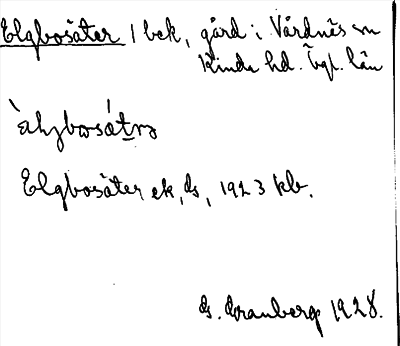 Elgbosäter 1 bek, gård i Vårdnäs sn
Kinda hd. Ögl. län
Elgbosäter ek, ds, 1923 kb.
ds. Granberg 1928.